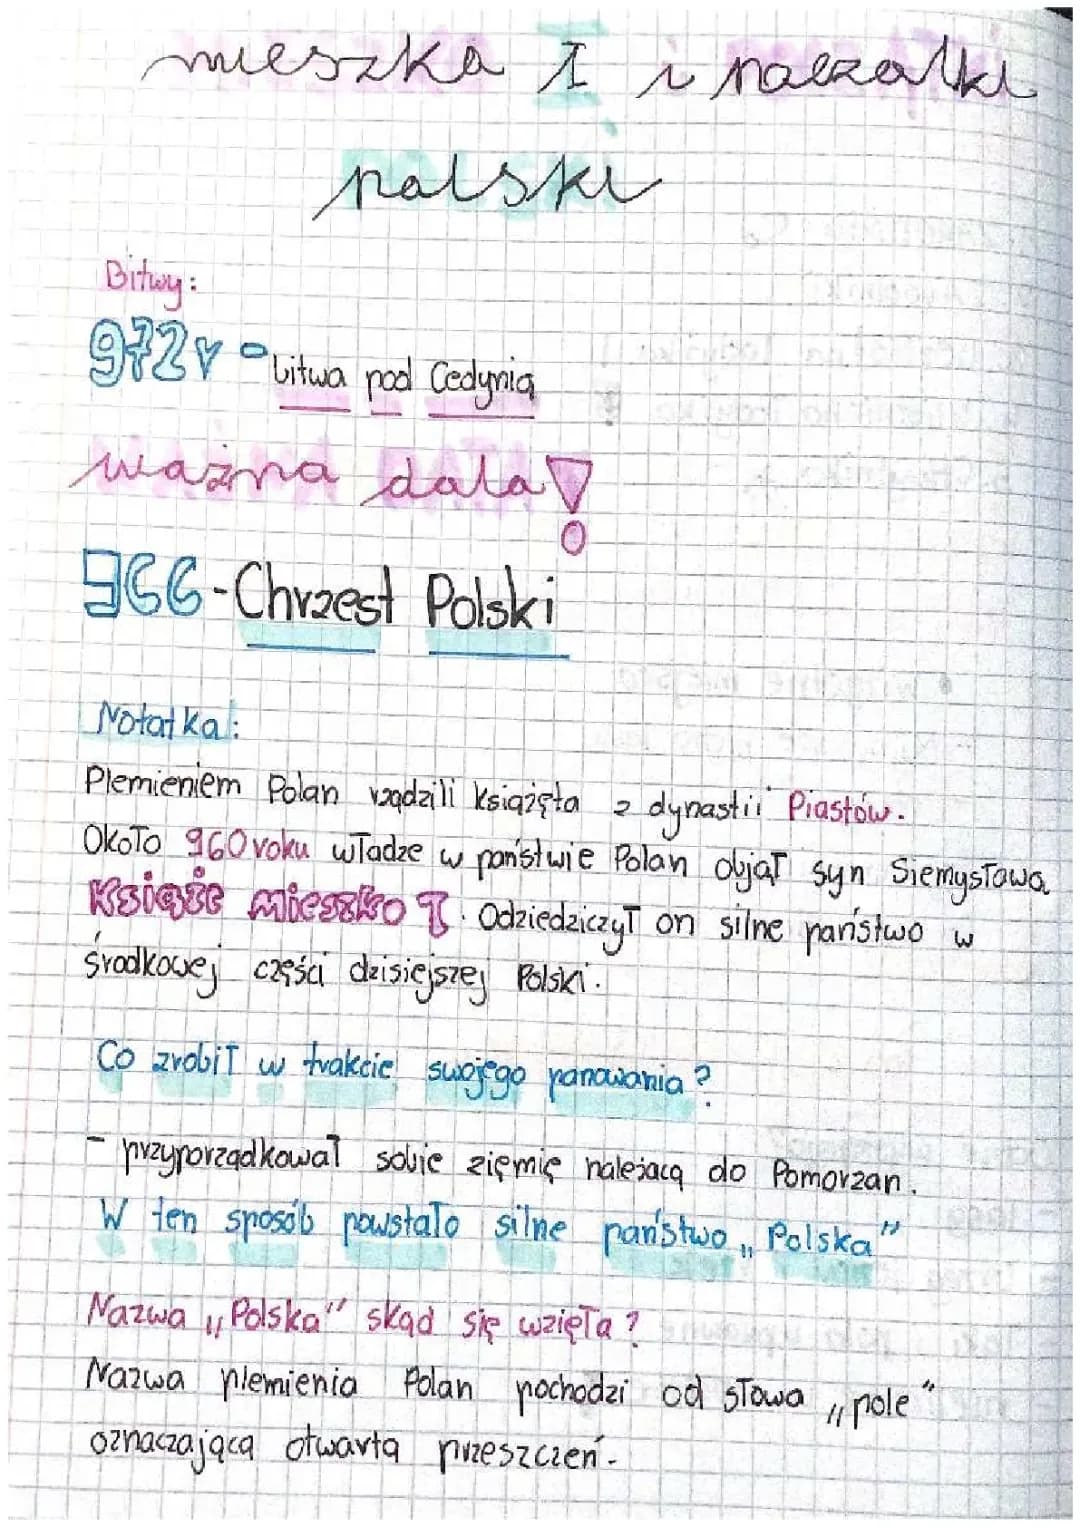 mieszka I i początki
polski
Bitwy:
972r - bitwa pod Cedynią
ważna data!
966 - Chrzest Polski
Notatka:
Plemieniem Polan rządzili książęta z dynastii Piastów.
Około 960 roku władze w państwie Polan objął syn Siemysława
Książe mieszko I. Odziedziczył on silne państwo w
środkowej części dzisiejszej Polski.
Co zrobił w trakcie swojego panowania?
- przyporządkował sobie ziemię należącą do Pomorzan.
W ten sposób powstało silne państwo „Polska”
Nazwa „Polska” skąd się wzięła?
Nazwa plemienia Polan pochodzi od słowa „pole”
oznaczającą otwartą przeszczeń.